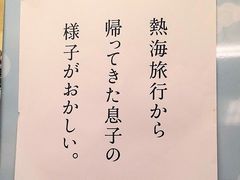 熱海旅行から
帰ってきた息子の
様子がおかしい。